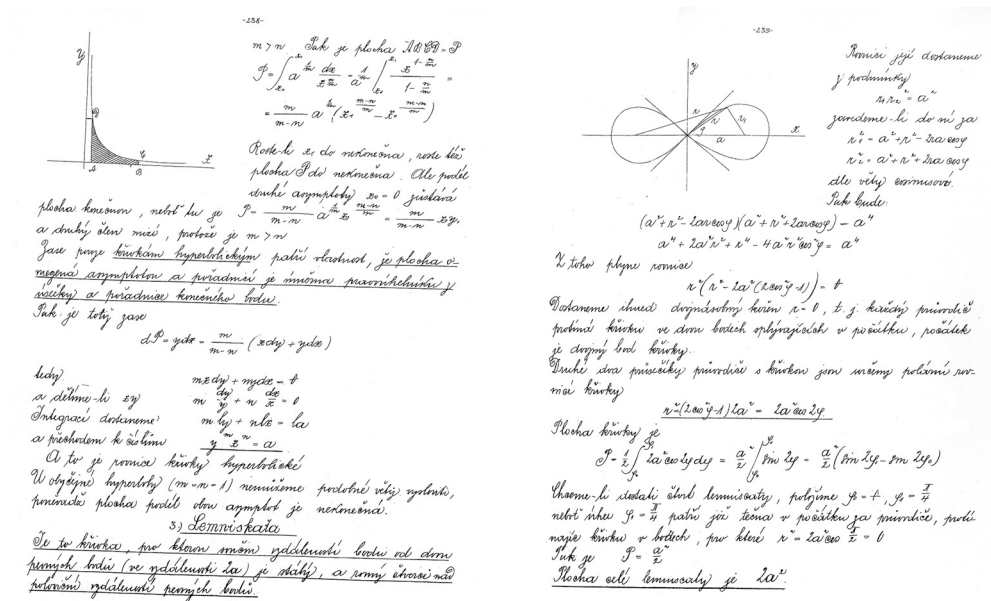 -238-
m > n. Pak je plocha ABCD = P
P = ∫ a^{1/m} dx / x^{n/m} = a^{1/m} | x^{1-n/m} / (1 - n/m) | =
= m/(m-n) a^{1/m} (x₁^{(m-n)/m} - x₀^{(m-n)/m})
Roste-li x₁ do nekonečna, roste též
plocha P do nekonečna. Ale podél
druhé asymptoty x₀ = 0 zůstává
plocha konečnou, neboť tu je P = m/(m-n) a^{1/m} x^{(m-n)/m} = m/(m-n) xy,
a druhý člen mizí, protože je m > n
Zase pouze křivkám hyperbolickým patří vlastnost, je plocha o-
mezená asymptotou a pořadnicí je úměrna pravoúhelníku z
úsečky a pořadnice konečného bodu.
Pak je totiž zase
dP = ydx = m/(m-n) (xdy + ydx)
tedy mxdy + nydx = 0
a dělíme-li xy m dy/y + n dx/x = 0
Integrací dostaneme m ly + nlx = la
a přechodem k číslům y^m x^n = a
A to je rovnice křivky hyperbolické
U obyčejné hyperboly (m = n = 1) nemůžeme podobné věty vysloviti,
poněvadž plocha podél obou asymptot je nekonečna.
3.) Lemniskata
Je to křivka, pro kterou součin vzdáleností bodu od dvou
pevných bodů (ve vzdálenosti 2a) je stálý, a rovný čtverci nad
poloviční vzdáleností pevných bodů.
-239-
Rovnici její dostaneme
z podmínky
r₁r₂ = a²
zavedeme-li do ní za
r₁² = a² + r² - 2ra cosφ
r₂² = a² + r² + 2ra cosφ
dle věty cosinusové.
Pak bude:
(a² + r² - 2ar cosφ)(a² + r² + 2ar cosφ) = a⁴
a⁴ + 2a²r² + r⁴ - 4a²r²cos²φ = a⁴
Z toho plyne rovnice
r²(r² - 2a²(2cos²φ - 1)) = 0
Dostaneme ihned dvojnásobný kořen r = 0, t. j. každý průvodič
protíná křivku ve dvou bodech splývajících v počátku, počátek
je dvojný bod křivky.
Druhé dva průsečíky průvodiče s křivkou jsou určeny polární rov-
nicí křivky
r² = (2cos²φ - 1) 2a² = 2a² cos 2φ
Plocha křivky je
P = 1/2 ∫ 2a² cos 2φ dφ = a²/2 | sin 2φ = a²/2 (sin 2φ₁ - sin 2φ₀)
Chceme-li dostati čtvrt lemniscaty, položíme φ₀ = 0, φ₁ = π/4
neboť úhlu φ₁ = π/4 patří již tečna v počátku za průvodiče, protí-
najíc křivku v bodech, pro které r² = 2a² cos π/2 = 0
Pak je P = a²/2
Plocha celé lemniscaty je 2a².